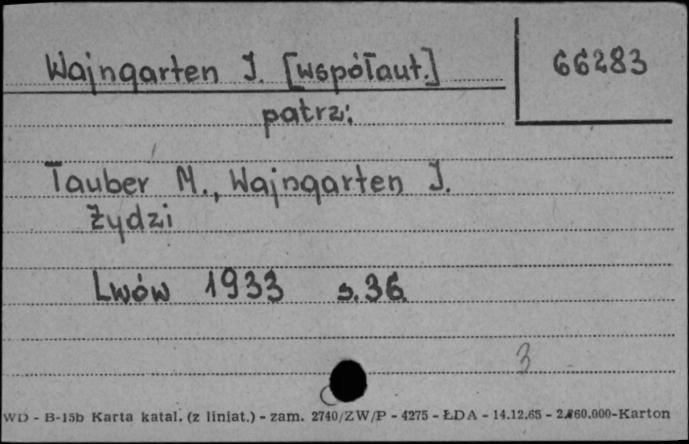 Wajngarten J. [współaut.]
66283
patrz:
Tauber M., Wajngarten J.
Żydzi
Lwów 1933 s.36.
3
WD - B-15b Karta katal. (z liniat.) - zam. 2740/ZW/P - 4275 - ŁDA - 14.12.65 - 2.860.000-Karton